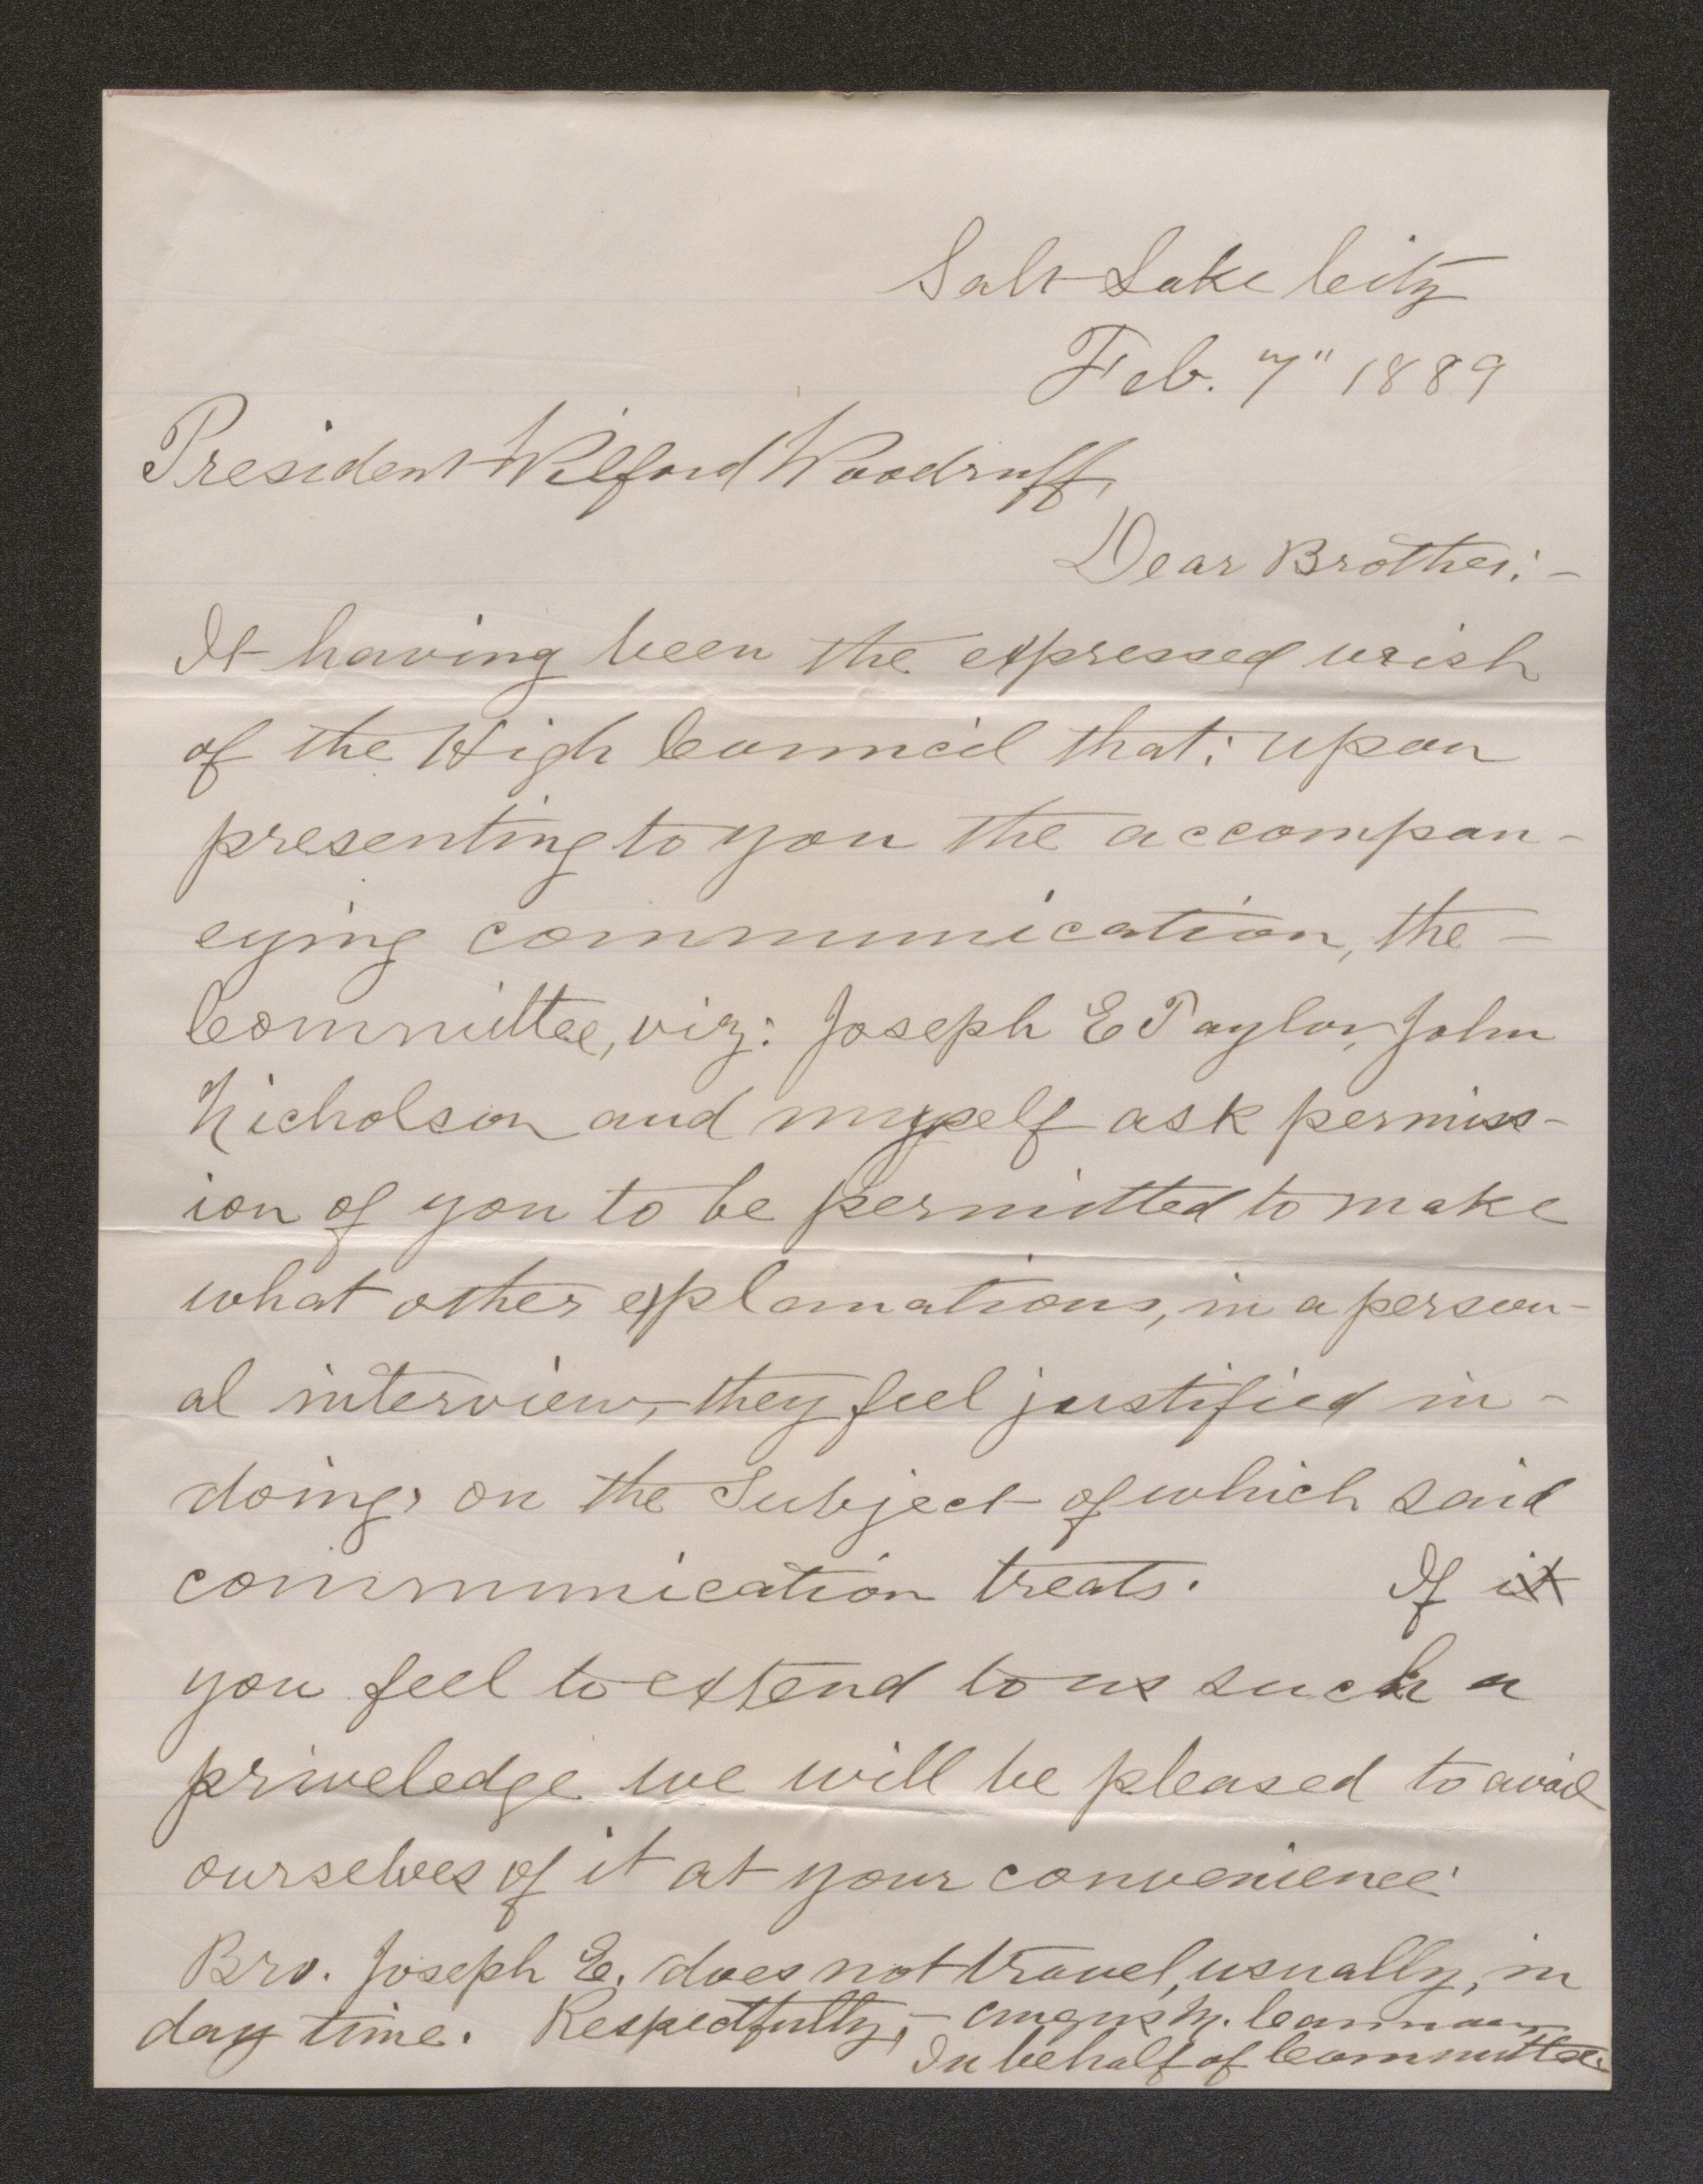 Salt Lake City
Feb. 7" 1889
President Wilford Woodruff,
Dear Brother:-
It having been the expressed wish
of the High Council that; upon
presenting to you the accompan-
eying communication, the -
Committee, viz: Joseph E Taylor, John
Nicholson and myself ask permiss-
ion of you to be permitted to make
what other explanations, in a person-
al interview, they feel justified in -
doing, on the Subject of which said
communication treats. If it
you feel to extend to us such a
priveledge we will be pleased to avail
ourselves of it at your convenience.
Bro. Joseph E. does not travel, usually, in
day time. Respectfully, - Angus M. Cannon
In behalf of Committee.